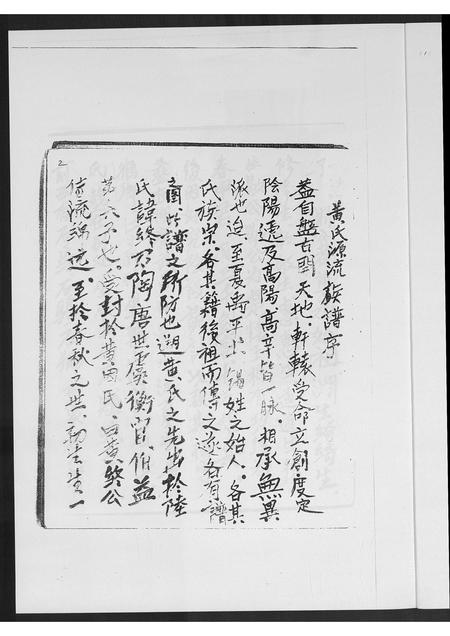 黃氏源流族譜序
蓋自盤古開天地．軒轅受命立創度定
陰陽遞及高陽高辛皆一脉．相承無異
派也迨．至夏禹平土錫姓之始人．各其
氏族宗．各其籍後祖而傳之遂各有譜
圖此譜之所防也遡黃氏之先出於陸
氏諱終六陶唐世虞衡官．伯益
第六子也．受封於黃因氏．曰黃 公
流 遠．至於春秋之世． 生一
2